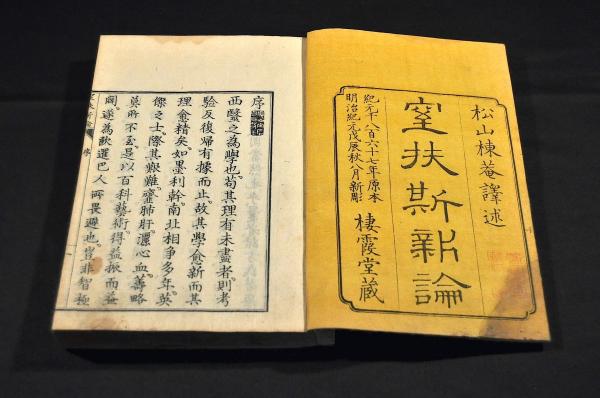 松山棟菴譯述
窒扶斯新論
紀元千八百六十七年原本
明治紀元戊辰秋八月新彫
棲霞堂蔵
序
西醫之為學也。苟其理有未盡者則考
驗反復帰有據而止。故其學愈新而其
理愈精矣如墨利幹。南北相爭多年。英
傑之士。際其艱難。肺肝。心血。籌略
莫所不至。是以百科藝術。得益振而益
闢。遂為歐邏巴人所畏避也。豈非智極